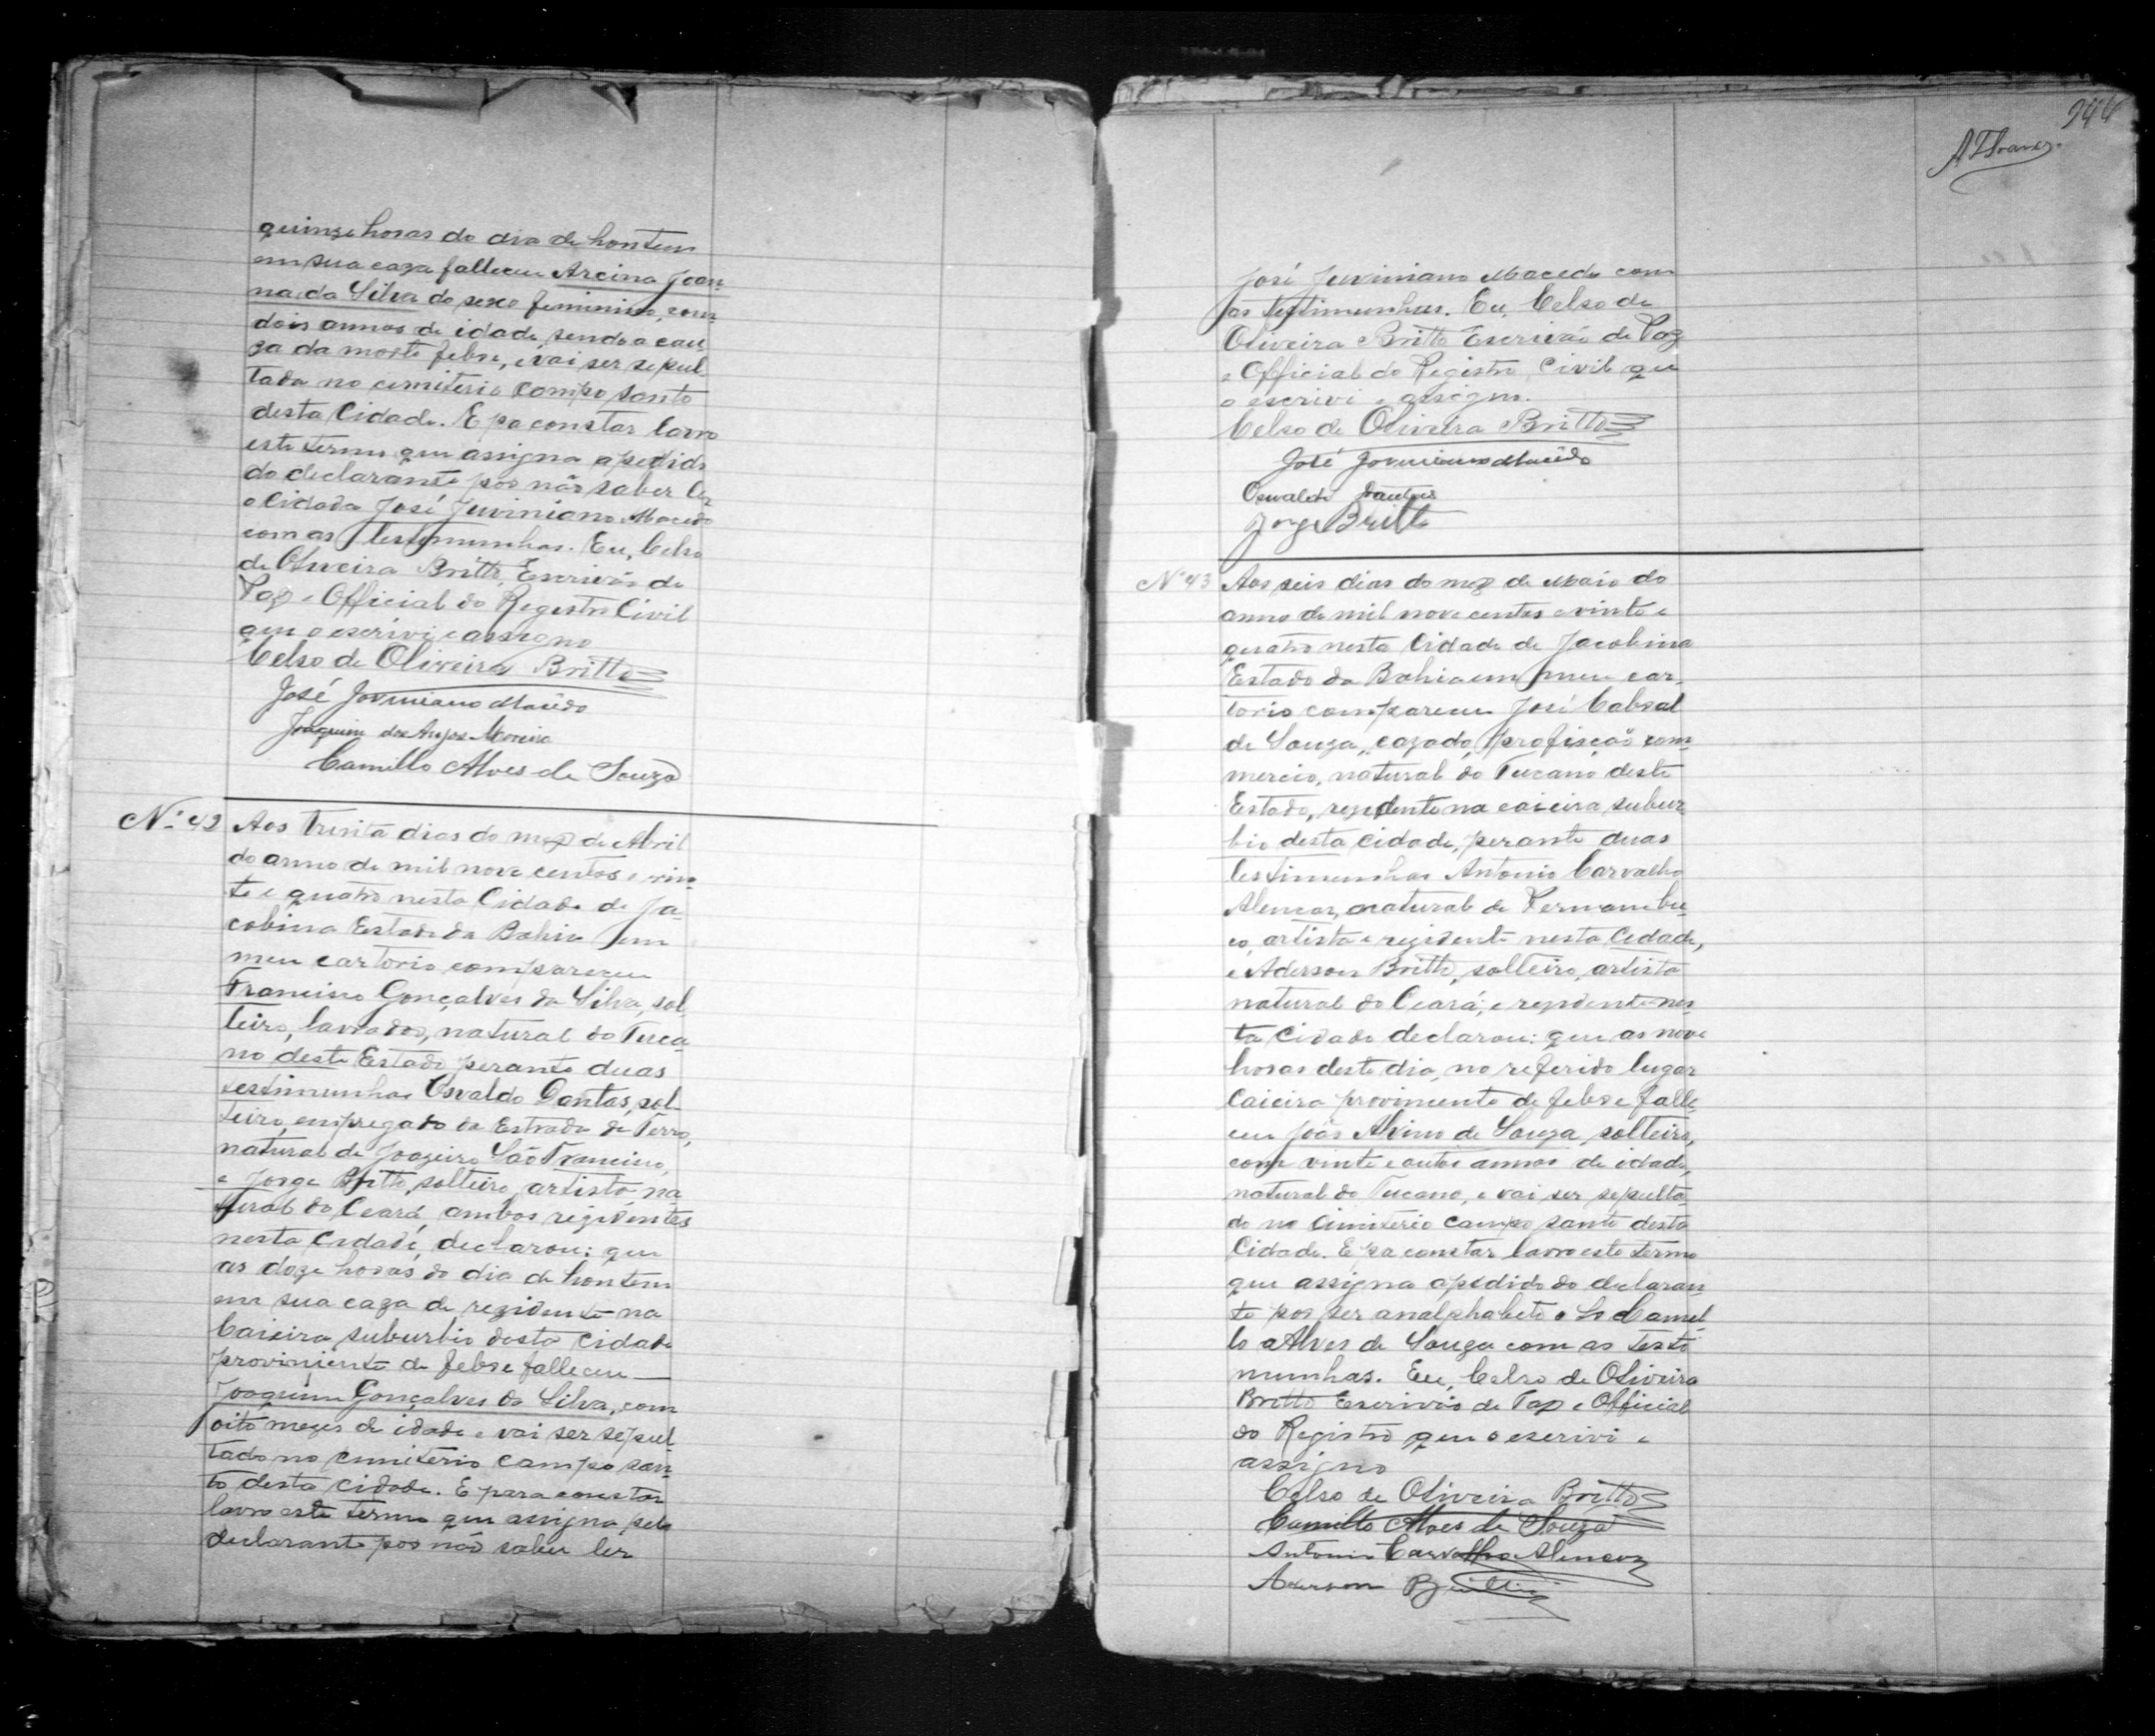 quinze horas do dia de hontem
em sua caza falleceu Arcina Joan
na da Silva do sexo feminino, com
dois annos de idade, sendo a cau
za da morte febre, e vai ser sepul
tada no cemiterio Campo Santo
desta Cidade. E pa constar lavro
este termo que assigna a pedido
do declarante por não saber ler
o Cidadão José Juviniano Macedo
com as testemunhas. Eu, Celso
de Oliveira Britto, Escrivão de
Paz e Official do Registro Civil
que o escrivi e assigno
Celso de Oliveira Britto
José Joviniano Macêdo
Joaquim dos Anjos Moreira
Camillo Alves de Souza
Nº 42 Aos trinta dias do mez de Abril
do anno de mil nove centos e vin
te e quatro nesta Cidade de Ja
cobina Estado da Bahia em
meu cartorio compareceu
Francisco Gonçalves da Silva, sol
teiro, lavrador, natural do Tuca
no deste Estado perante duas
testimunhas Osvaldo Dantas, sol
teiro, empregado da Estrada de Ferro,
natural de Joazeiro São Francisco,
e Jorge Britto, solteiro, artista, na
tural do Ceará, ambos rezidentes
nesta Cidade, declarou: que
as doze horas do dia de hontem
em sua caza de rezidente na
Caieira suburbio desta Cidade
proviniente de febre falleceu
Joaquim Gonçalves da Silva, com
oito mezes de idade e vai ser sepul
tado no cemiterio Campo San
to desta Cidade. E para constar
lavro este termo que assigna pelo
declarante por não saber ler
944
José Juviniano Macedo com
as testimunhas. Eu, Celso de
Oliveira Britto Escrivão de Paz
e Official do Registro Civil que
o escrivi e assigno.
Celso de Oliveira Britto
José Joviniano Macêdo
Oswaldo Dantas
Jorge Britto
Nº 43 Aos seis dias do mez de Maio do
anno de mil nove centos e vinte e
quatro nesta Cidade de Jacobina
Estado da Bahia em meu car
torio compareceu José Cabral
de Souza, cazado, profissão com
mercio, natural do Tucano deste
Estado, rezidente na caieira, subur
bio desta Cidade, perante duas
testimunhas Antonio Carvalho
Alencar, natural de Pernambu
co, artista e rezidente nesta Cidade,
e Aderson Britto, solteiro, artista
natural do Ceará, e rezidente nes
ta Cidade declarou: que as nove
horas deste dia, no referido lugar
Caieira proviniente de febre falle
ceu João Alvino de Souza solteiro,
com vinte e outo annos de idade,
natural do Tucano, e vai ser sepulta
do no Cimiterio Campo Santo desta
Cidade. E pa constar lavro este termo
que assigna a pedido do declaran
te por ser analphabeto o Sr Camil
lo Alves de Souza com as testi
munhas. Eu, Celso de Oliveira
Britto Escrivão de Paz e Official
do Registro que o escrivi e
assigno
Celso de Oliveira Britto
Camillo Alves de Souza
Antonio Carvalho Alencar
Aderson Britto